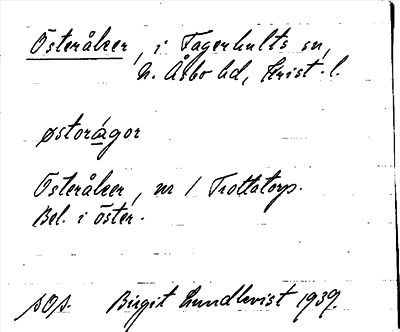 Österåker, i Fagerhults sn,
N. Åsbo hd, Krist. l.
østorágor
Österåker, nr 1 Trottatorp.
Bel. i öster.
SOA Birgit Lundkvist 1939.